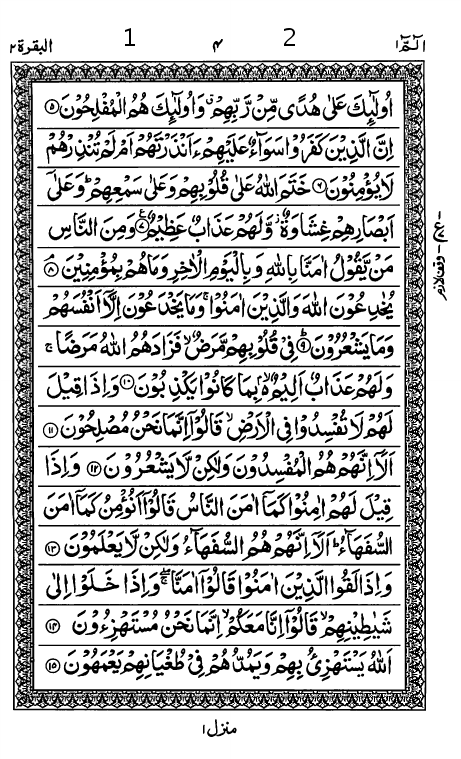 الٓمّٓ ١ 2 ٤ 1 البقرة ٢
اُولٰٓئِكَ عَلٰى هُدًى مِّنْ رَّبِّهِمْ ۗ وَاُولٰٓئِكَ هُمُ الْمُفْلِحُوْنَ ۝٥
اِنَّ الَّذِيْنَ كَفَرُوْا سَوَآءٌ عَلَيْهِمْ ءَاَنْذَرْتَهُمْ اَمْ لَمْ تُنْذِرْهُمْ
لَا يُؤْمِنُوْنَ ۝٦ خَتَمَ اللّٰهُ عَلٰى قُلُوْبِهِمْ وَعَلٰى سَمْعِهِمْ ؕ وَعَلٰٓى
اَبْصَارِهِمْ غِشَاوَةٌ ؗ وَّلَهُمْ عَذَابٌ عَظِيْمٌ ۝٧ ع وَمِنَ النَّاسِ
مَنْ يَّقُوْلُ اٰمَنَّا بِاللّٰهِ وَبِالْيَوْمِ الْاٰخِرِ وَمَا هُمْ بِمُؤْمِنِيْنَ ۝٨ۘ
يُخٰدِعُوْنَ اللّٰهَ وَالَّذِيْنَ اٰمَنُوْا ۚ وَمَا يَخْدَعُوْنَ اِلَّآ اَنْفُسَهُمْ
وَمَا يَشْعُرُوْنَ ۝٩ؕ فِيْ قُلُوْبِهِمْ مَّرَضٌ ۙ فَزَادَهُمُ اللّٰهُ مَرَضًا ۚ
وَلَهُمْ عَذَابٌ اَلِيْمٌ ۢ ۙ بِمَا كَانُوْا يَكْذِبُوْنَ ۝١٠ وَاِذَا قِيْلَ
لَهُمْ لَا تُفْسِدُوْا فِي الْاَرْضِ ۙ قَالُوْٓا اِنَّمَا نَحْنُ مُصْلِحُوْنَ ۝١١
اَلَآ اِنَّهُمْ هُمُ الْمُفْسِدُوْنَ وَلٰكِنْ لَّا يَشْعُرُوْنَ ۝١٢ وَاِذَا
قِيْلَ لَهُمْ اٰمِنُوْا كَمَآ اٰمَنَ النَّاسُ قَالُوْٓا اَنُؤْمِنُ كَمَآ اٰمَنَ
السُّفَهَآءُ ؕ اَلَآ اِنَّهُمْ هُمُ السُّفَهَآءُ وَلٰكِنْ لَّا يَعْلَمُوْنَ ۝١٣
وَاِذَا لَقُوا الَّذِيْنَ اٰمَنُوْا قَالُوْٓا اٰمَنَّا ۖۚ وَاِذَا خَلَوْا اِلٰى
شَيٰطِيْنِهِمْ ۙ قَالُوْٓا اِنَّا مَعَكُمْ ۙ اِنَّمَا نَحْنُ مُسْتَهْزِءُوْنَ ۝١٤
اَللّٰهُ يَسْتَهْزِئُ بِهِمْ وَيَمُدُّهُمْ فِيْ طُغْيَانِهِمْ يَعْمَهُوْنَ ۝١٥
وقف لازم
منزل ١